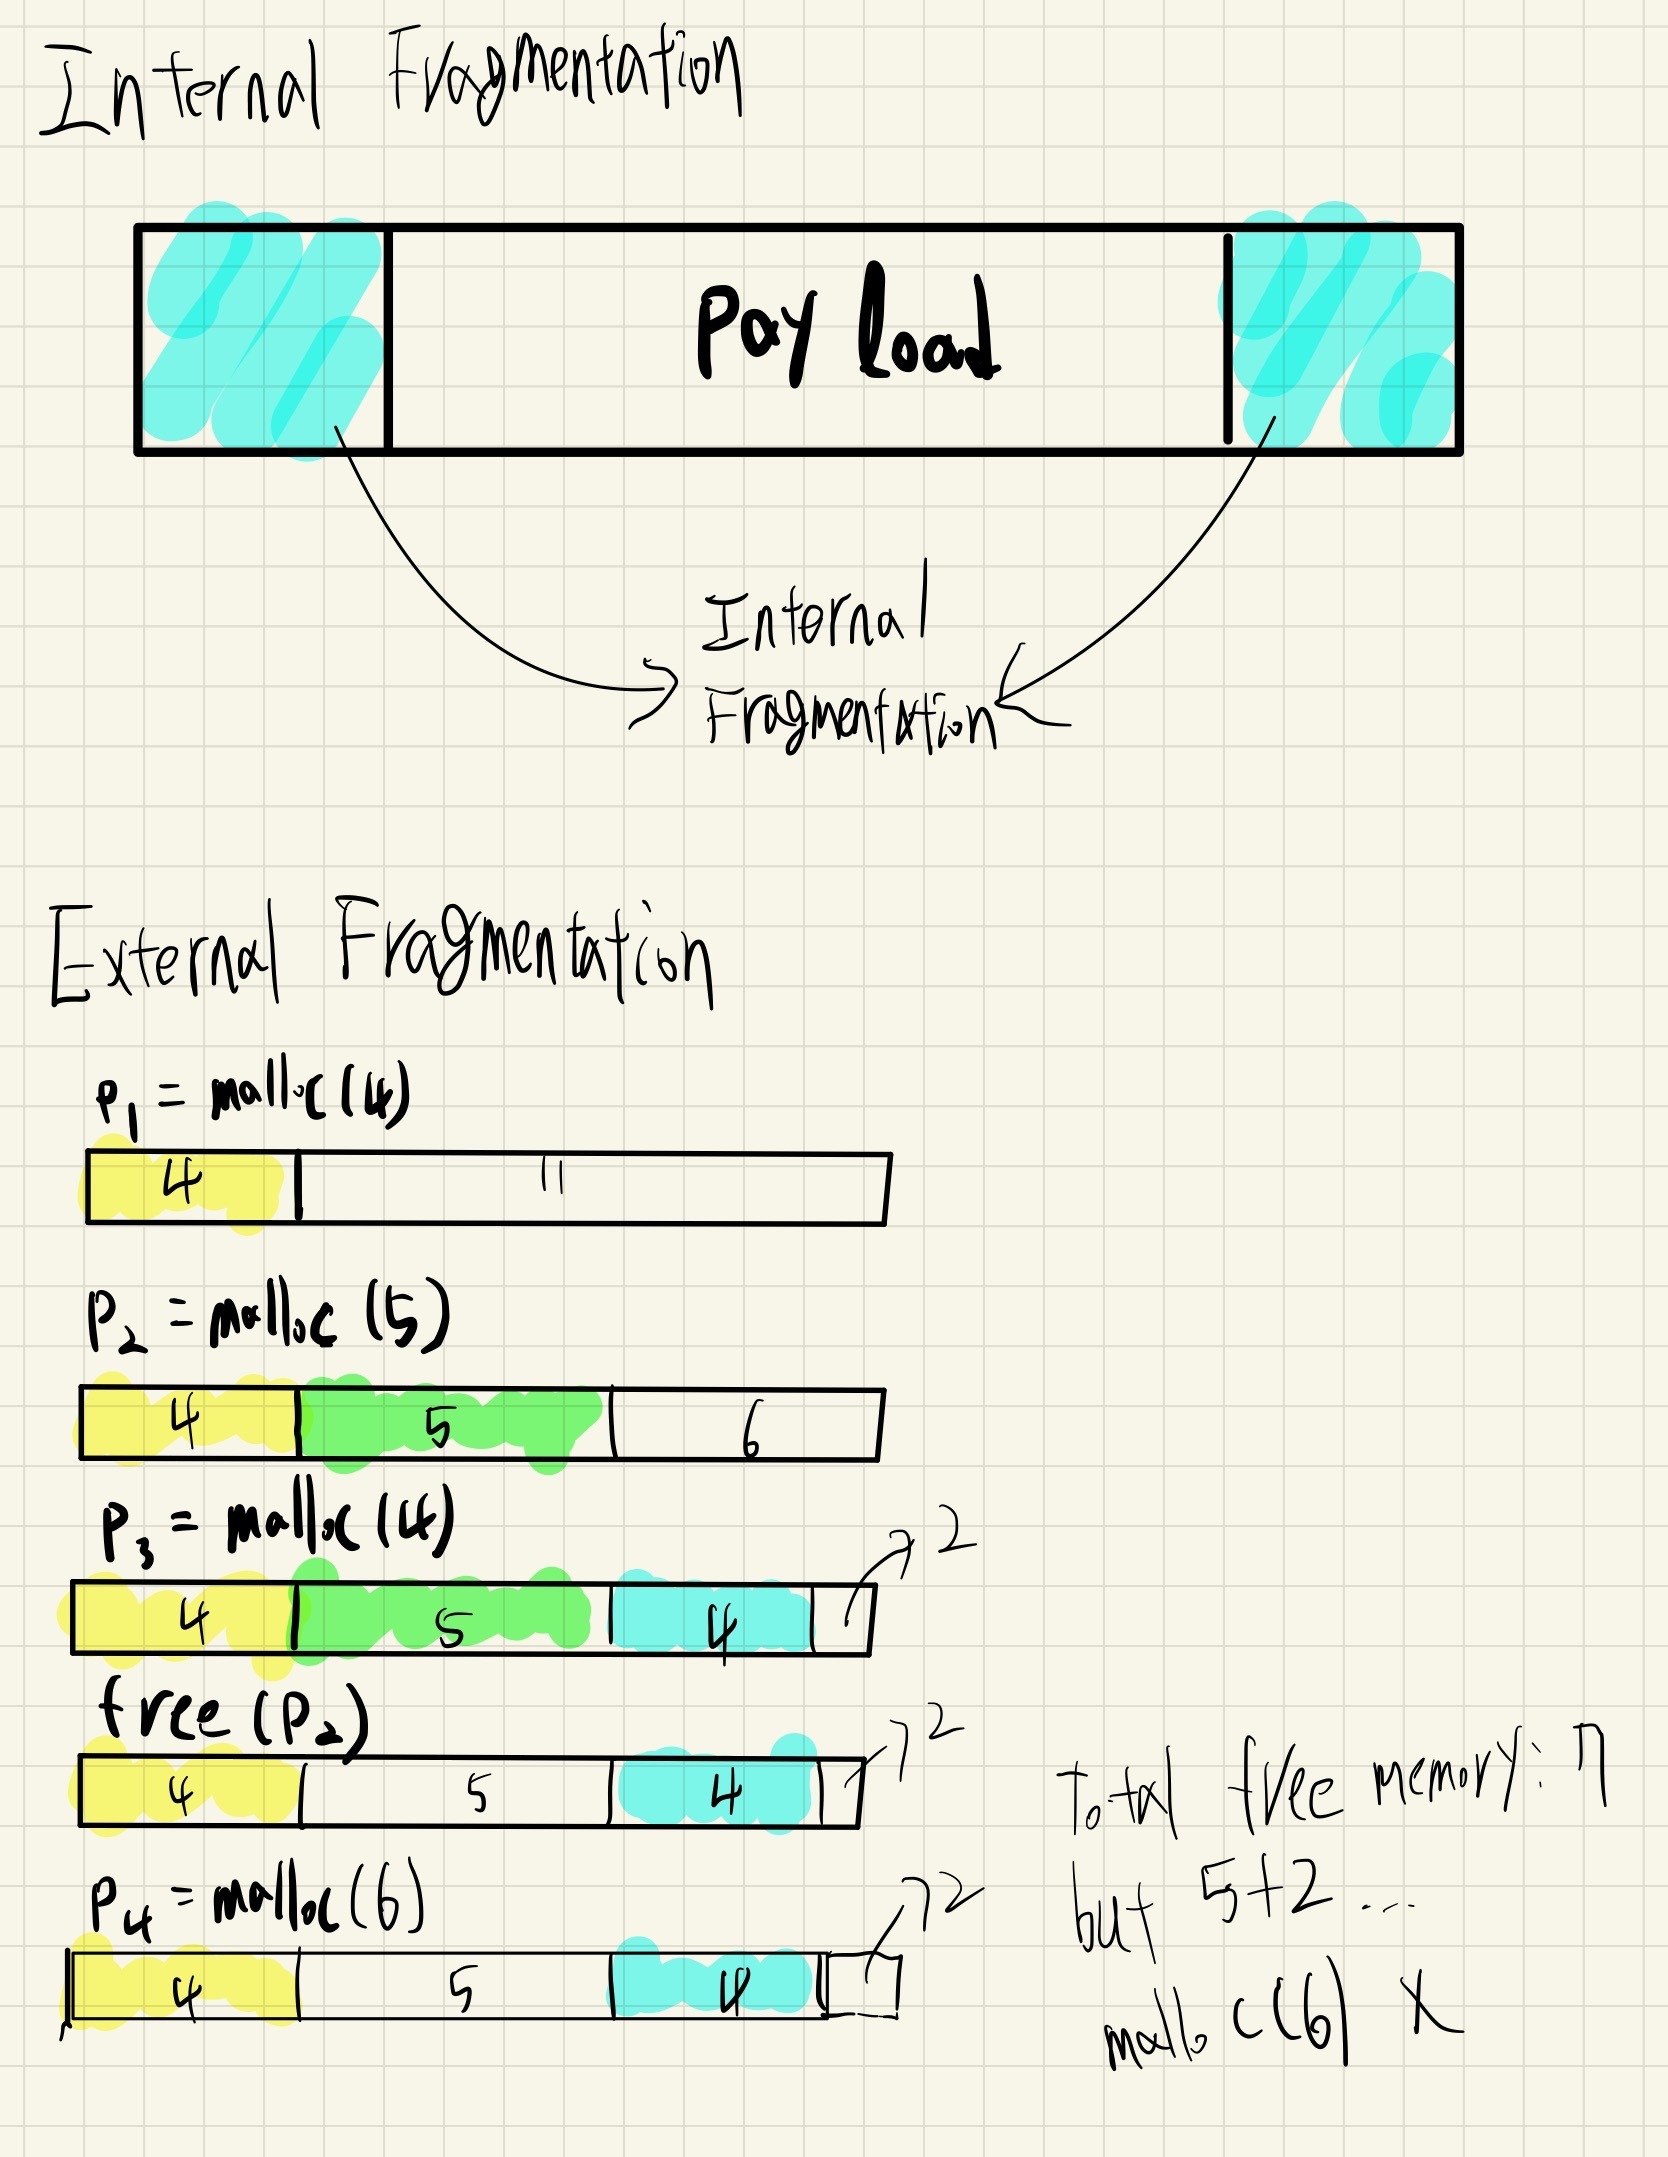 Internal Fragmentation
Pay load
Internal
Fragmentation
External Fragmentation
P1 = malloc (4)
4 11
P2 = malloc (5)
4 5 6
P3 = malloc (4)
2
4 5 4
free (P2)
2
4 5 4
Total free memory: 7
but 5+2 ...
malloc(6) X
P4 = malloc(6)
2
4 5 4